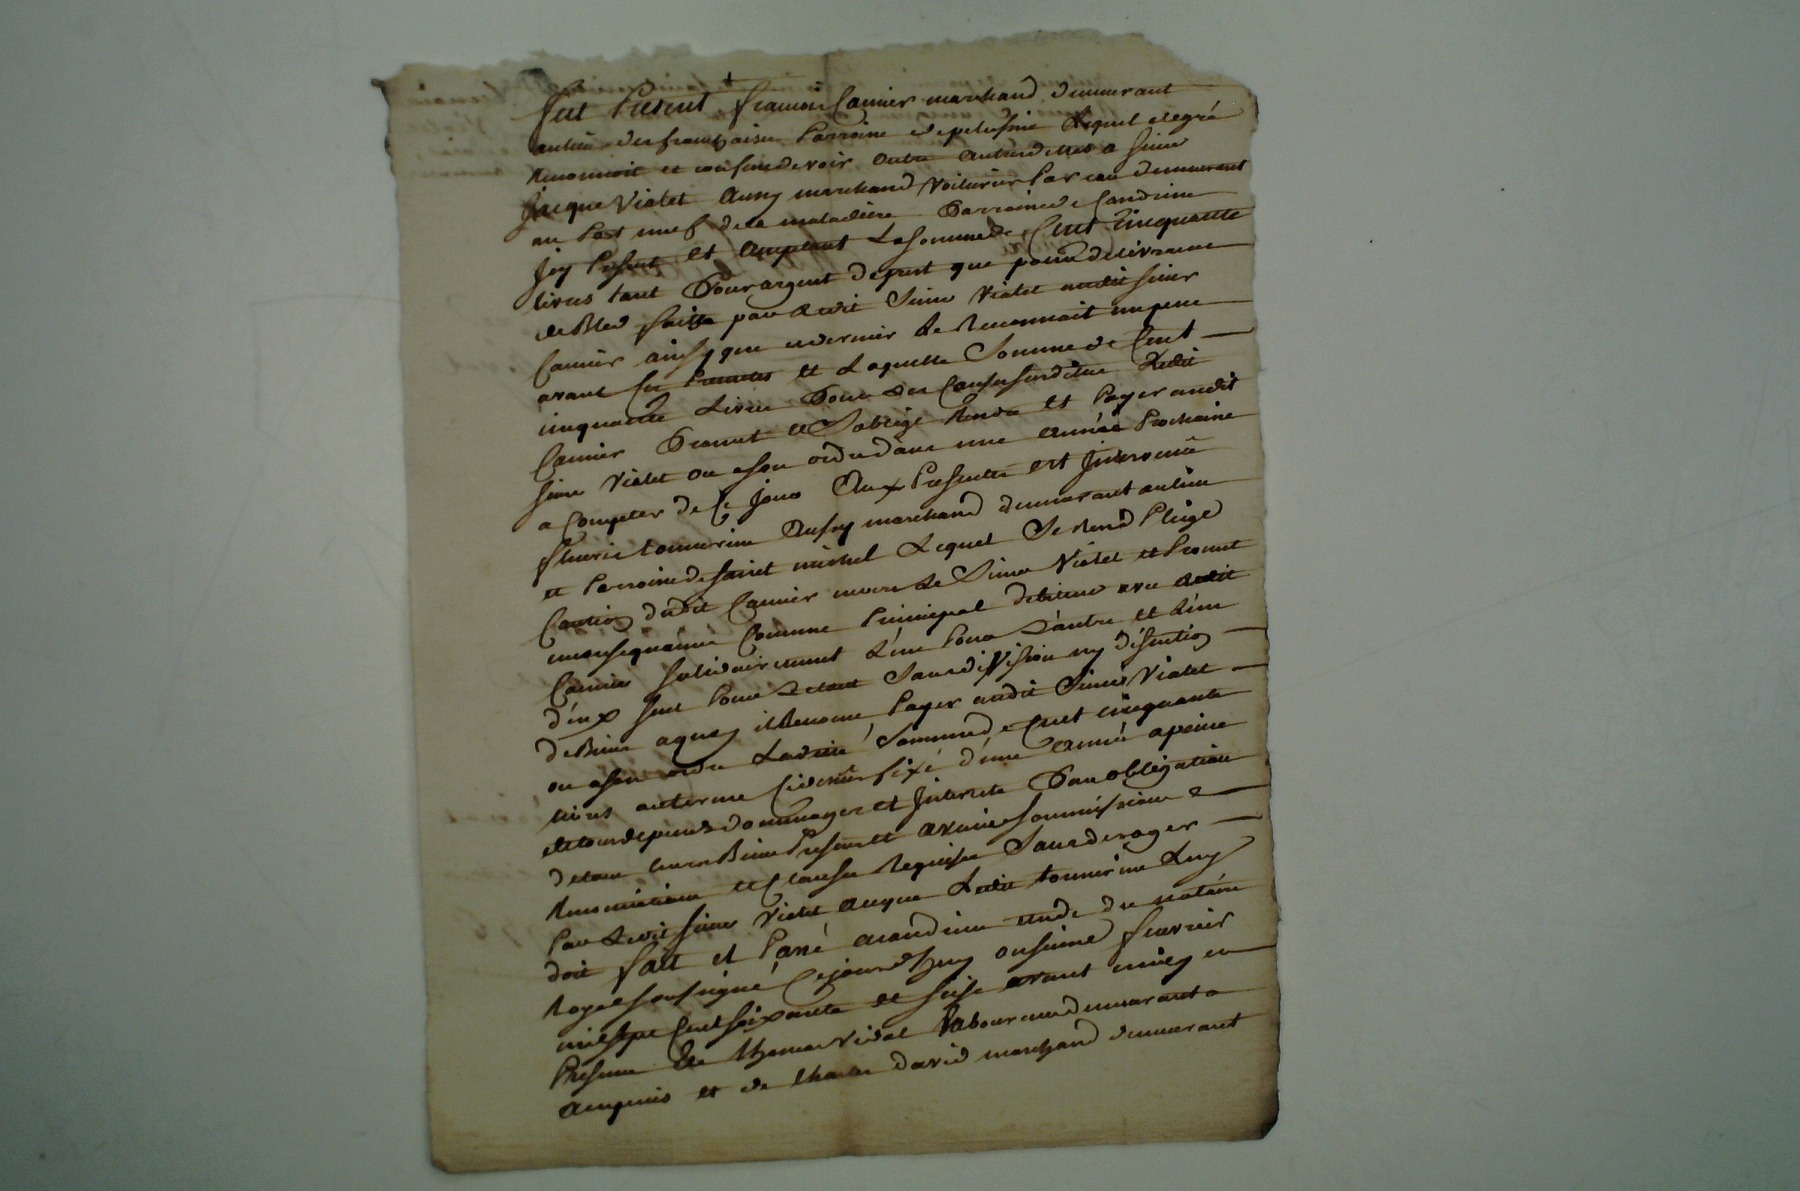 fut Present françois Camier marchand demeurant
au lieu des franchaises Parroisse de pelussin Lequel de gré
Reconnoit et confesse devoir outre autres dettes a sieur
Jacque Vialet Aussy marchand voiturier Par eau demeurant
au Port neuf de la maladiere Parroisse de Condrieu
Icy Present et acceptant La somme de Cent Cinquante
livres tant Pour argent de prest que pour delivrance
de Bled faitte par Ledit Sieur Vialet audit sieur
Camier ainsy que ce dernier Le Reconnoit un peu
avant Ces Presentes et Laquelle Somme de Cent
cinquante Livres Pour Les Causes susdites Ledit
Camier Promet et S'oblige Rendre et Payer audit
sieur Vialet ou a son ordre dans une année Prochaine
a Compter de Ce Jour Aux Presentes est Intervenu
fleurie tonnerieu Aussy marchand demeurant au lieu
et Parroisse de saint michel Lequel Se Rend Pleige
Caution dudit Camier envers Le Sieur Vialet et Promet
en consequence Comme Principal debiteur avec Ledit
Camier solidairement L'un Pour L'autre et L'un
d'eux seul Pour Le tout Sans division ny discution
de Biens a quoy il Renonce Payer audit Sieur Vialet
ou a son ordre Laditte Somme de Cent cinquante
livres au terme Cy dessus fixé d'une année a peine
de tous depens dommages et Interests Par obligation
de tous leurs Biens Presents et avenir soummissions
Renonciations et Clauses Requises Sans deroger
Par Ledit sieur Vialet a ce que Ledit tonnerieu Luy
doit fait et Passé a Condrieu etude du notaire
Royal soussigné Ce jourd'huy onsieme fevrier
mil sept Cent soixante et seise avant midy en
Presence de thomas vidal Laboureur demeurant a
Ampuis et de Charles david marchand demeurant